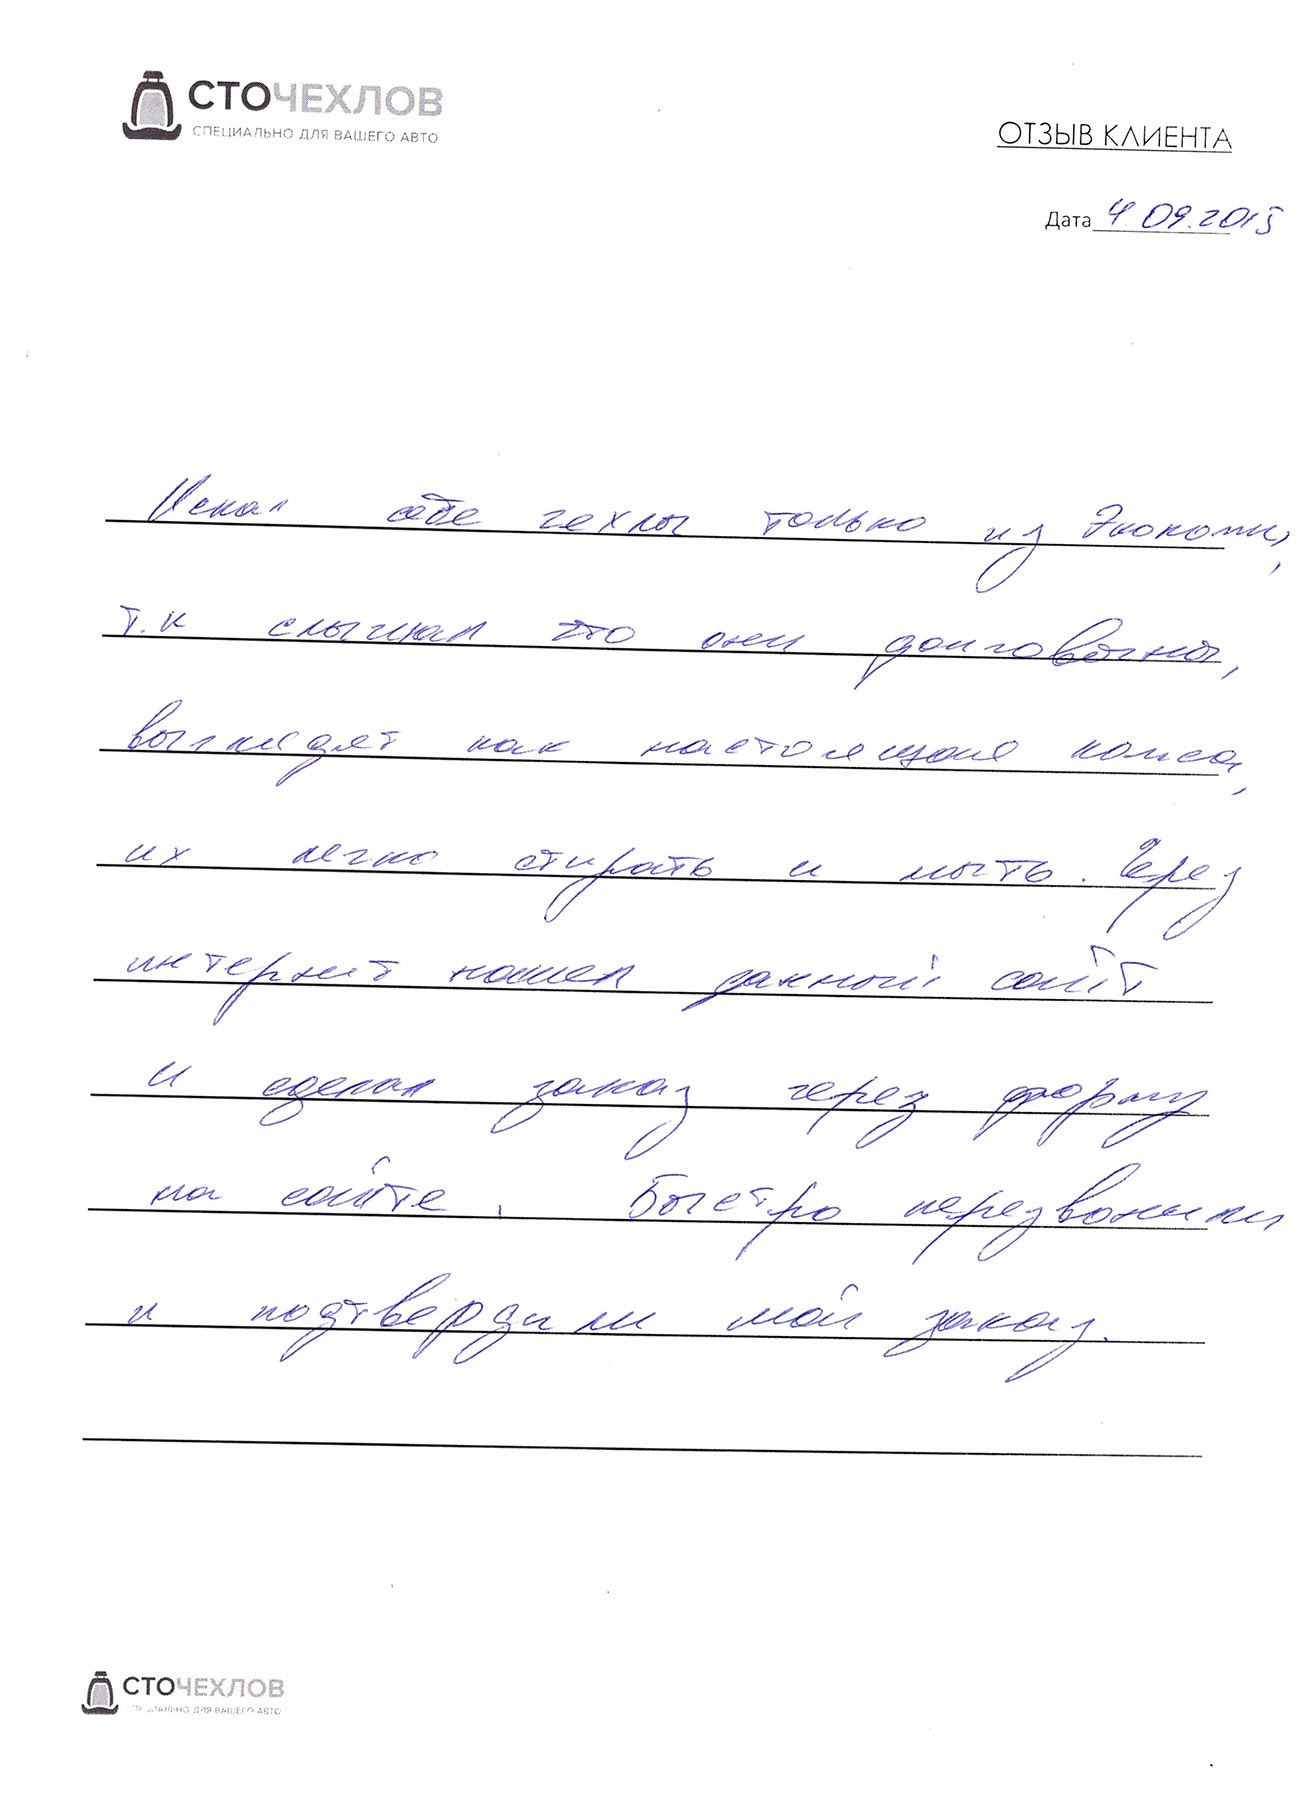 СТОЧЕХЛОВ
СПЕЦИАЛЬНО ДЛЯ ВАШЕГО АВТО
ОТЗЫВ КЛИЕНТА
Дата 4.09.2015
Искал себе чехлы только из Экокожи,
т.к слышал что они долговечны,
выглядят как настоящая кожа,
их легко стирать и мыть. Через
интернет нашел данный сайт
и сделал заказ через форму
на сайте. Быстро перезвонили
и подтвердили мой заказ.
СТОЧЕХЛОВ
СПЕЦИАЛЬНО ДЛЯ ВАШЕГО АВТО